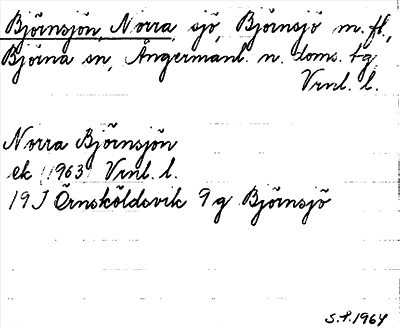 Björnsjön, Norra, sjö, Björnsjö m. fl.,
Björna sn, Ångermanl. n. doms. tg,
Vrnl. l.
Norra Björnsjön
ek (1963) Vrnl. l.
19J Örnsköldsvik 9g Björnsjö
S.F. 1964